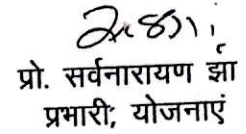 प्रो. सर्वनारायण झा
प्रभारी; योजनाएं